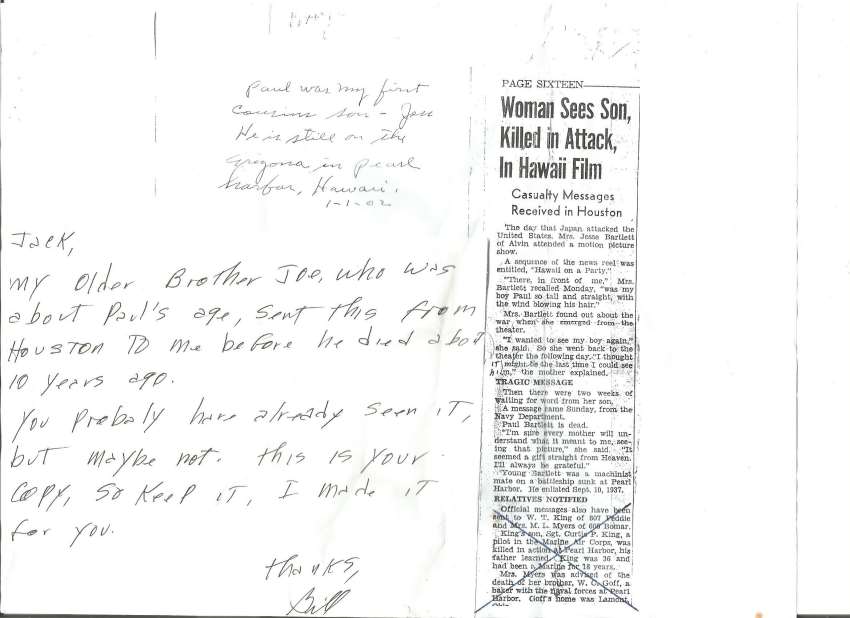 Paul was my first
cousins son - Joe
He is still on the
Arizona in pearl
harbor, Hawaii.
1-1-02
Jack,
my older Brother Joe, who was
about Paul's age, sent this from
Houston To me before he died about
10 years ago.
You Probaly have already seen it,
but maybe not. This is your
copy, so keep it, I made it
for you.
thanks,
Bill
PAGE SIXTEEN
Woman Sees Son,
Killed in Attack,
In Hawaii Film
Casualty Messages
Received in Houston
The day that Japan attacked the
United States, Mrs. Jesse Bartlett
of Alvin attended a motion picture
show.
A sequence of the news reel was
entitled, "Hawaii on a Party."
"There, in front of me," Mrs.
Bartlett recalled Monday, "was my
boy Paul so tall and straight, with
the wind blowing his hair."
Mrs. Bartlett found out about the
war when she emerged from the
theater.
"I wanted to see my boy again,"
she said. So she went back to the
theater the following day. "I thought
it might be the last time I could see
him," the mother explained.
TRAGIC MESSAGE
Then there were two weeks of
waiting for word from her son,
A message came Sunday, from the
Navy Department.
Paul Bartlett is dead.
"I'm sure every mother will un-
derstand what it meant to me, see-
ing that picture," she said. "It
seemed a gift straight from Heaven.
I'll always be grateful."
Young Bartlett was a machinist
mate on a battleship sunk at Pearl
Harbor. He enlisted Sept. 10, 1937.
RELATIVES NOTIFIED
Official messages also have been
sent to W. T. King of 807 Peddie
and Mrs. M. L. Myers of 609 Bomar.
King's son, Sgt. Curtis P. King, a
pilot in the Marine Air Corps, was
killed in action at Pearl Harbor, his
father learned. King was 36 and
had been a Marine for 18 years.
Mrs. Myers was advised of the
death of her brother, W. C. Goff, a
baker with the naval forces at Pearl
Harbor. Goff's home was Lamont,